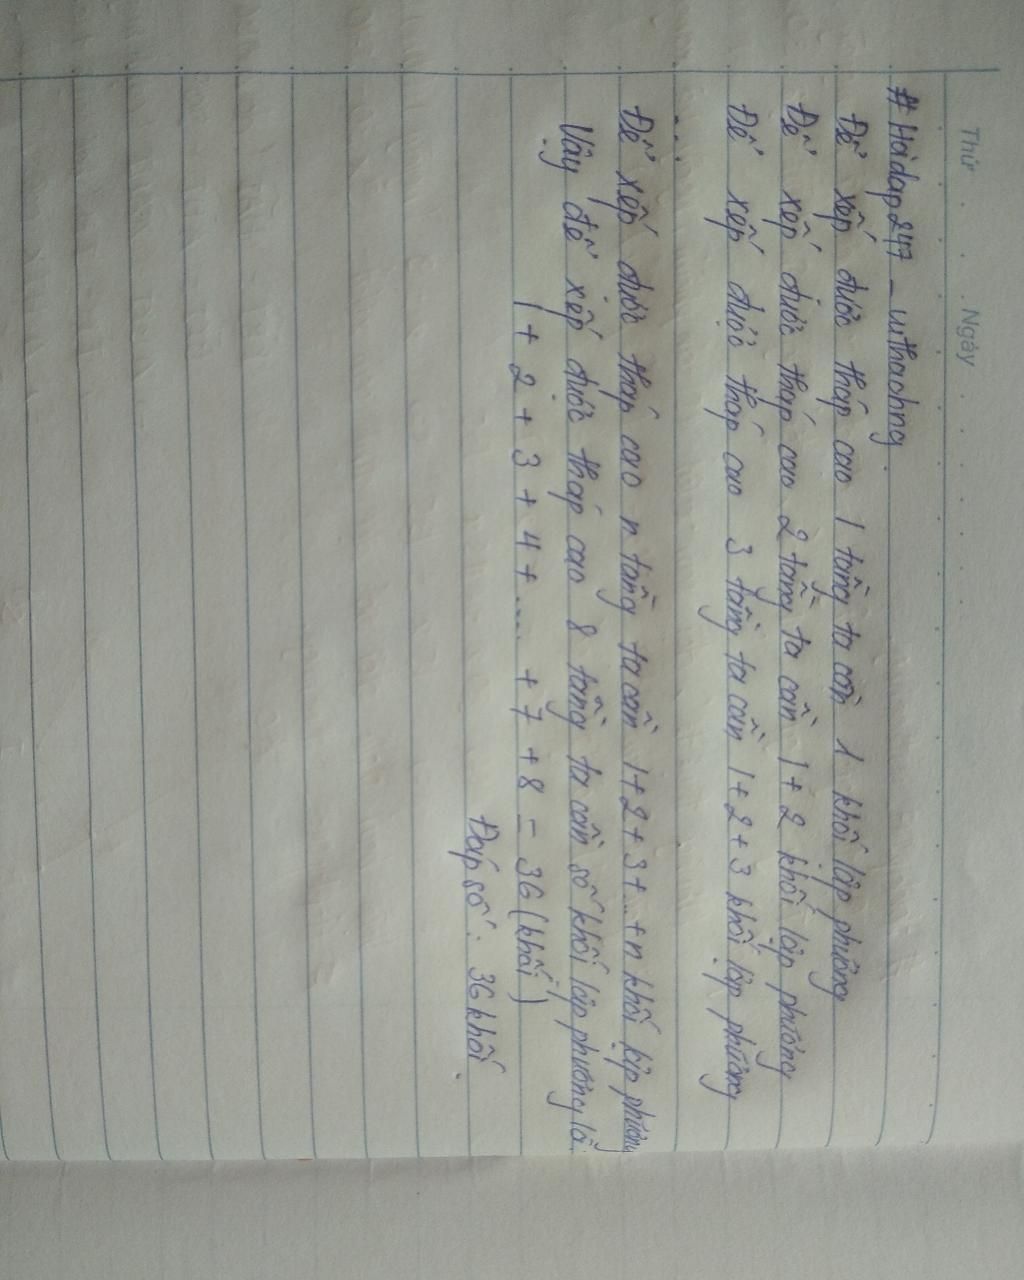 Thứ Ngày
#Hoidap247_withaohng
Để xếp được tháp cao 1 tầng ta cần 1 khối lập phương
Để xếp được tháp cao 2 tầng ta cần 1 + 2 khối lập phương
Để xếp được tháp cao 3 tầng ta cần 1 + 2 + 3 khối lập phương
...
Để xếp được tháp cao n tầng ta cần 1 + 2 + 3 + ... + n khối lập phương
Vậy để xếp được tháp cao 8 tầng ta cần số khối lập phương là
1 + 2 + 3 + 4 + .... + 7 + 8 = 36 (khối)
Đáp số : 36 khối